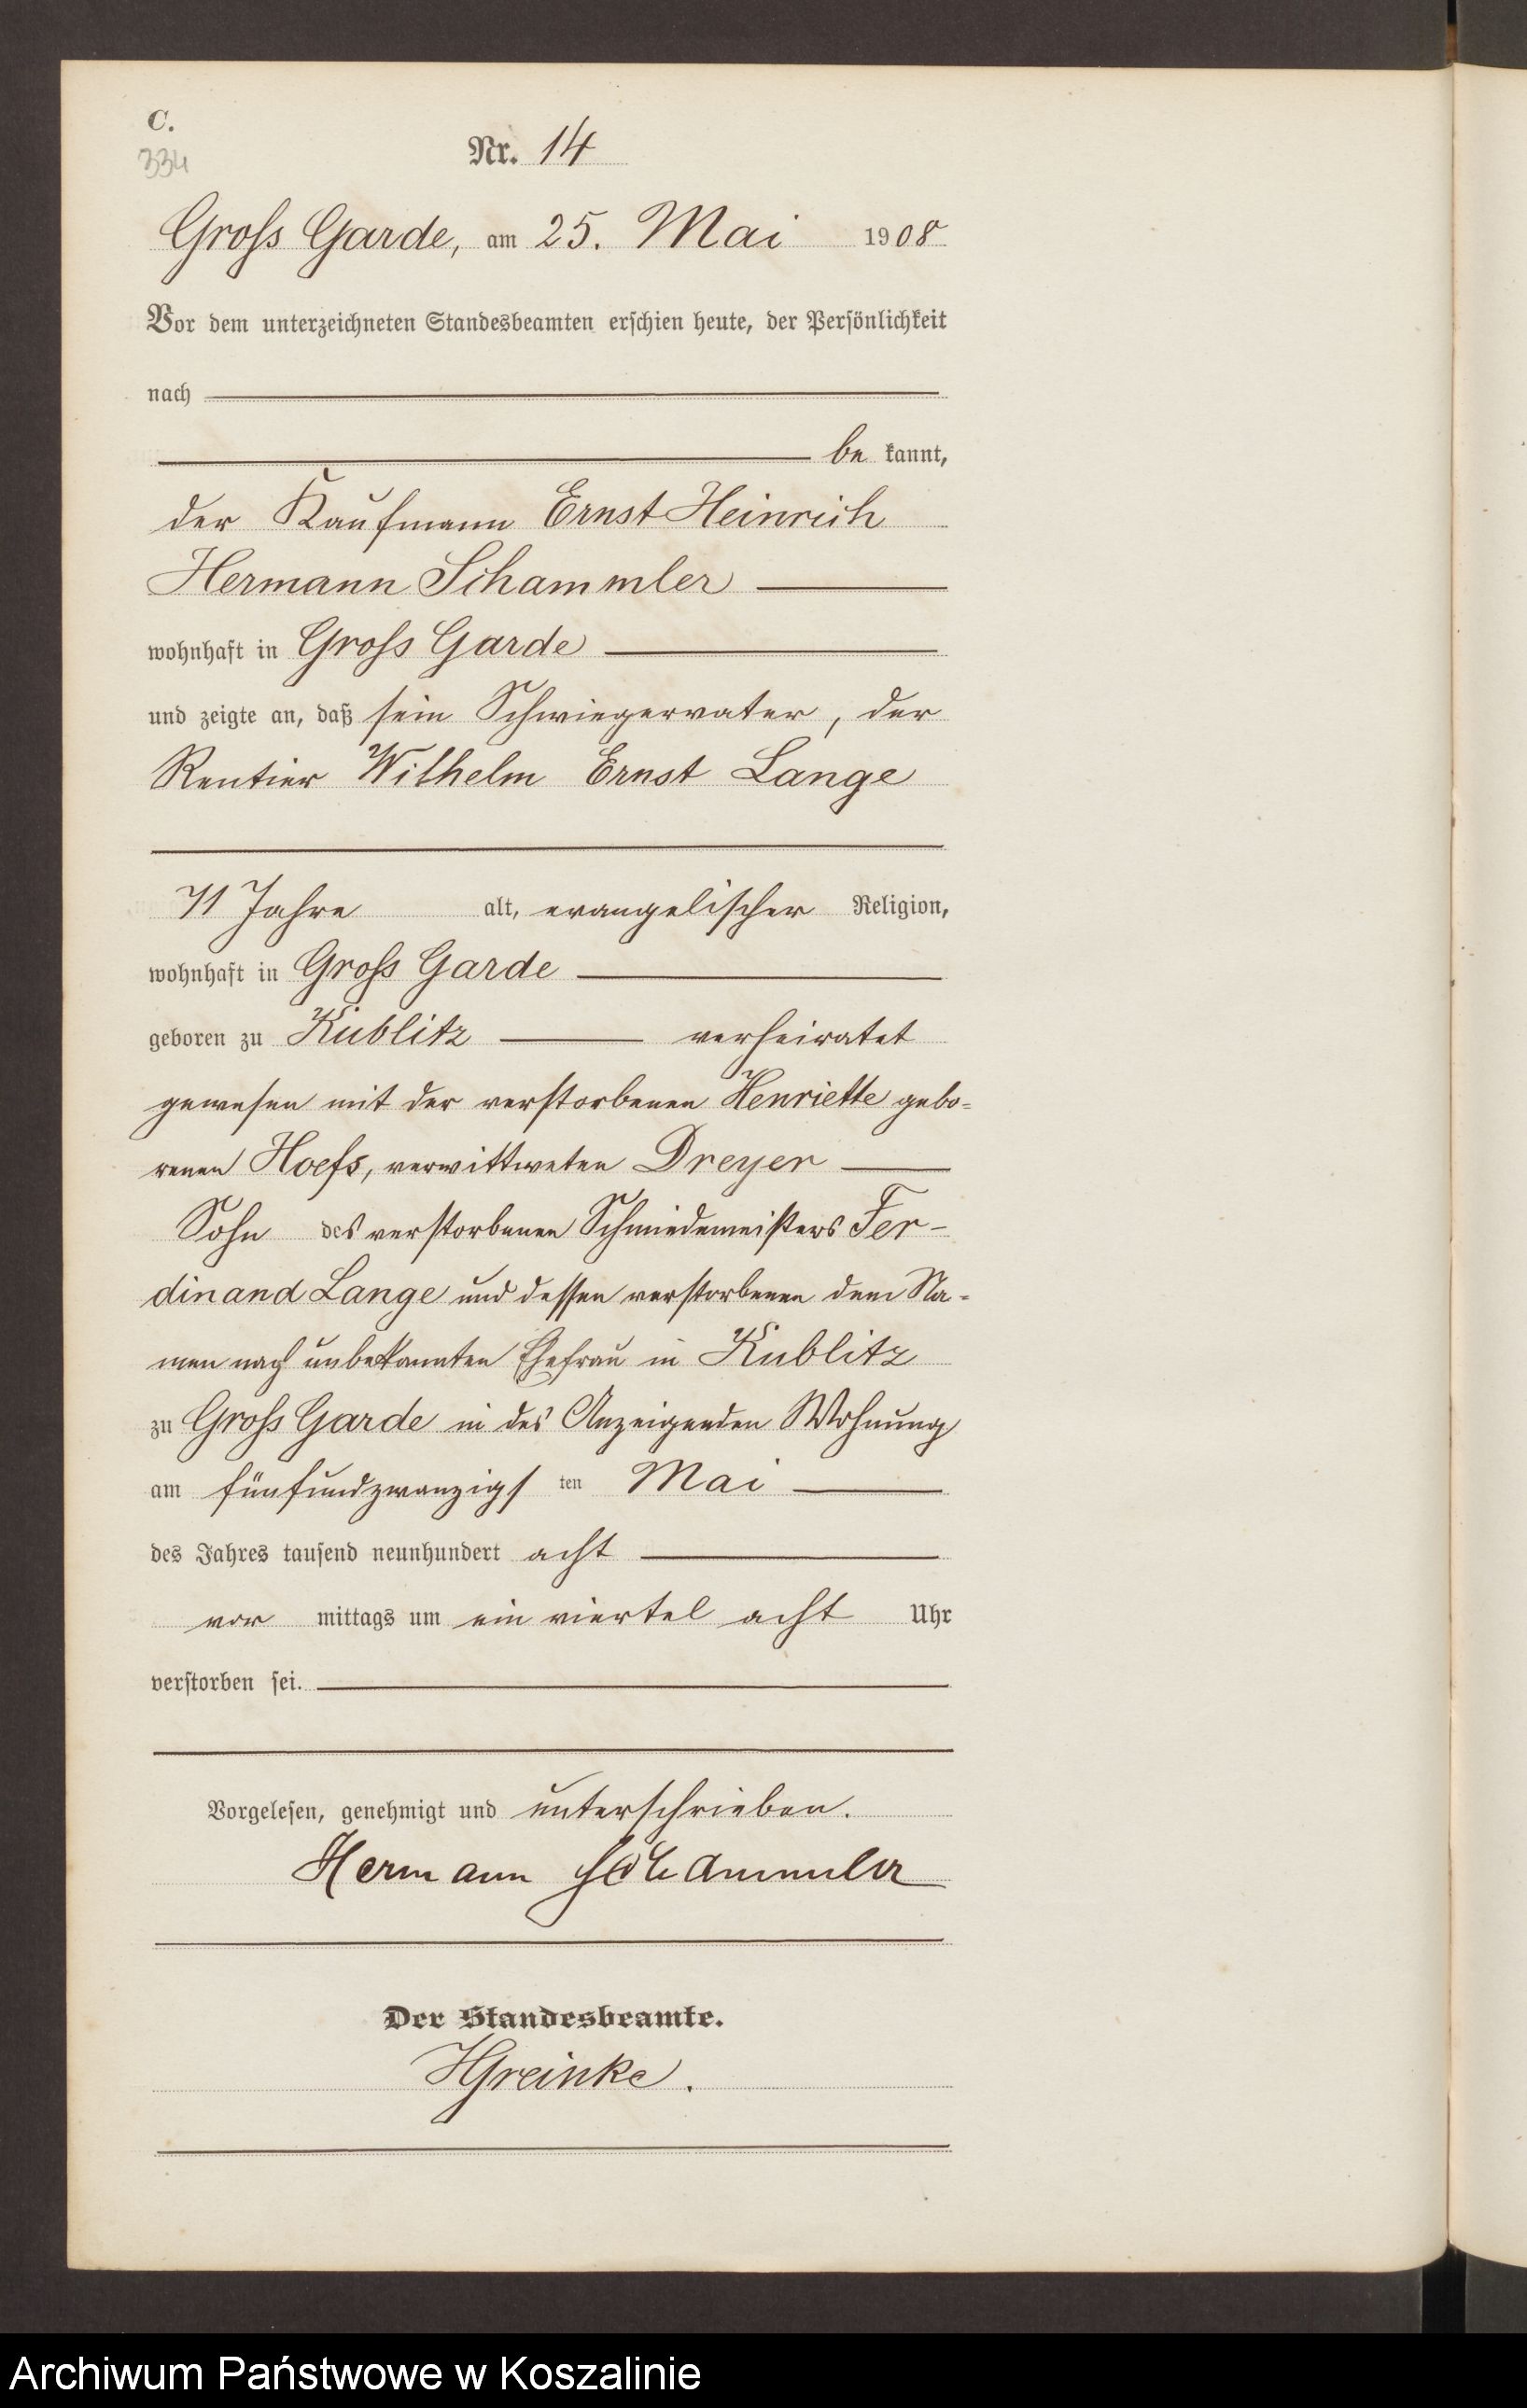 C.
334
Nr. 14
Gross Garde, am 25. Mai 1908
Vor dem unterzeichneten Standesbeamten erschien heute, der Persönlichkeit
nach
be kannt,
der Kaufmann Ernst Heinrich
Hermann Schammler
wohnhaft in Gross Garde
und zeigte an, daß sein Schwiegervater, der
Rentier Wilhelm Ernst Lange
71 Jahre alt, evangelischer Religion,
wohnhaft in Gross Garde
geboren zu Kublitz verheiratet
gewesen mit der verstorbenen Henriette gebo-
renen Hoefs, verwittweten Dreyer
Sohn des verstorbenen Schmiedemeisters Fer-
dinand Lange und dessen verstorbenen dem Na-
men nach unbekannten Ehefrau in Kublitz
zu Gross Garde in des Anzeigenden Wohnung
am fünfundzwanzigs ten Mai
des Jahres tausend neunhundert acht
vor mittags um ein viertel acht Uhr
verstorben sei.
Vorgelesen, genehmigt und unterschrieben.
Hermann Schammler
Der Standesbeamte.
HGreinke.
Archiwum Państwowe w Koszalinie